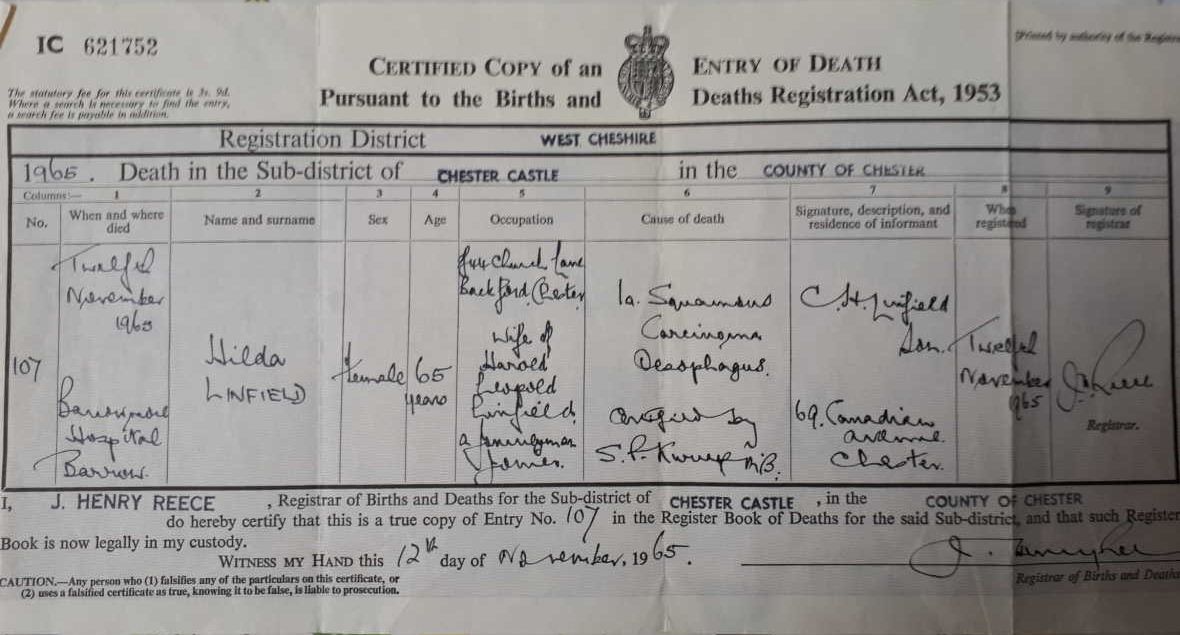 IC 621752
(Printed by authority of the Registrar
CERTIFIED COPY of an ENTRY OF DEATH
The statutory fee for this certificate is 3s. 9d.
Where a search is necessary to find the entry,
a search fee is payable in addition.
Pursuant to the Births and Deaths Registration Act, 1953
Registration District WEST CHESHIRE
1965. Death in the Sub-district of CHESTER CASTLE in the COUNTY OF CHESTER
Columns:— 1 2 3 4 5 6 7 8 9
No. When and where died Name and surname Sex Age Occupation Cause of death Signature, description, and residence of informant When registered Signature of registrar
107
Twelfth
November
1965
Barrowmore
Hospital
Barrow.
Hilda
LINFIELD
Female
65
years
Church Lane
Backford. Chester
Wife of
Harold
Leopold
Linfield
a
1a. Squamous
Carcinoma
Oesophagus.
Certified by
S. P. MB.
C. H. Linfield
Son.
69. Canadian
avenue.
Chester.
Twelfth
November
1965
Registrar.
I, J. HENRY REECE , Registrar of Births and Deaths for the Sub-district of CHESTER CASTLE , in the COUNTY OF CHESTER
do hereby certify that this is a true copy of Entry No. 107 in the Register Book of Deaths for the said Sub-district, and that such Register
Book is now legally in my custody.
WITNESS MY HAND this 12th day of November, 1965.
CAUTION.—Any person who (1) falsifies any of the particulars on this certificate, or
(2) uses a falsified certificate as true, knowing it to be false, is liable to prosecution.
Registrar of Births and Deaths